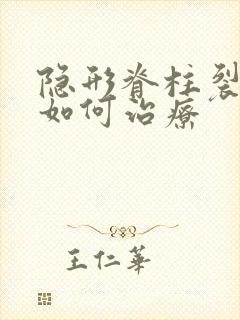 隐形脊柱裂
如何治療
王仁華